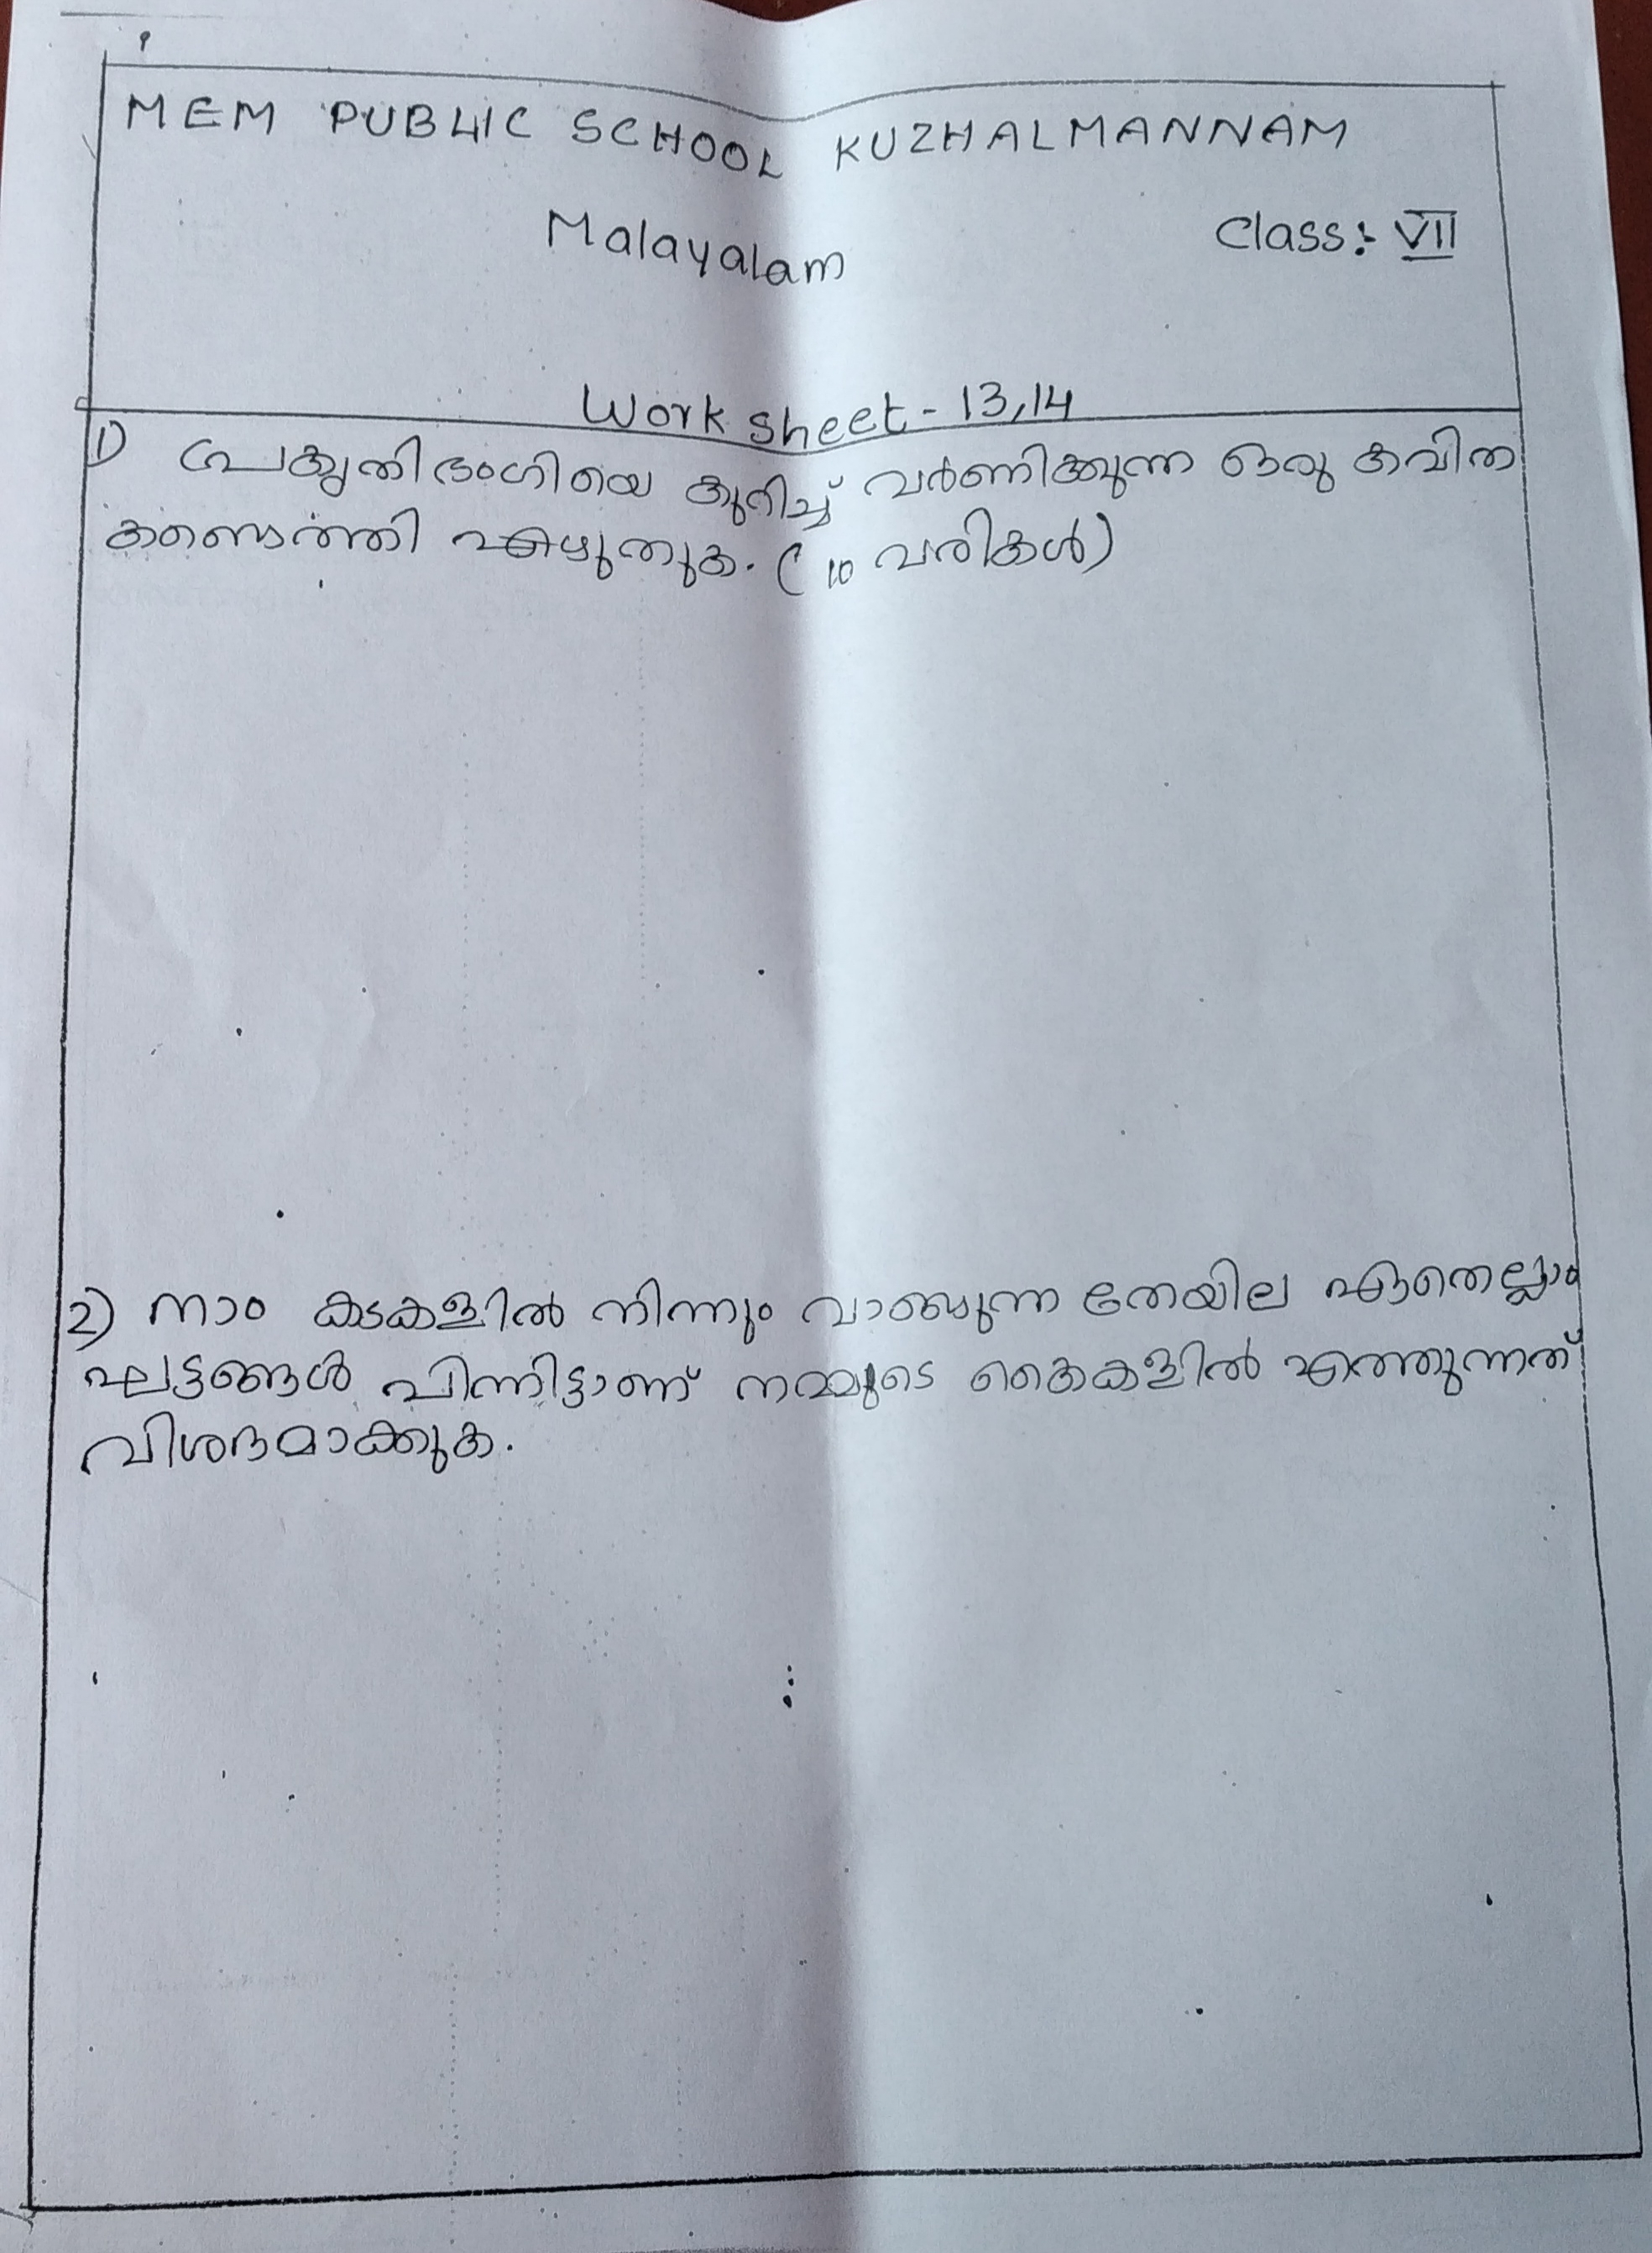 MEM PUBLIC SCHOOL KUZHALMANNAM
Malayalam Class:- VII
Work sheet - 13,14
1) പ്രകൃതിഭംഗിയെ കുറിച്ച് വർണിക്കുന്ന ഒരു കവിത
കണ്ടെത്തി എഴുതുക. (10 വരികൾ)
2) നാം കടകളിൽ നിന്നും വാങ്ങുന്ന തേയില ഏതെല്ലാം
ഘട്ടങ്ങൾ പിന്നിട്ടാണ് നമ്മുടെ കൈകളിൽ എത്തുന്നത്
വിശദമാക്കുക.